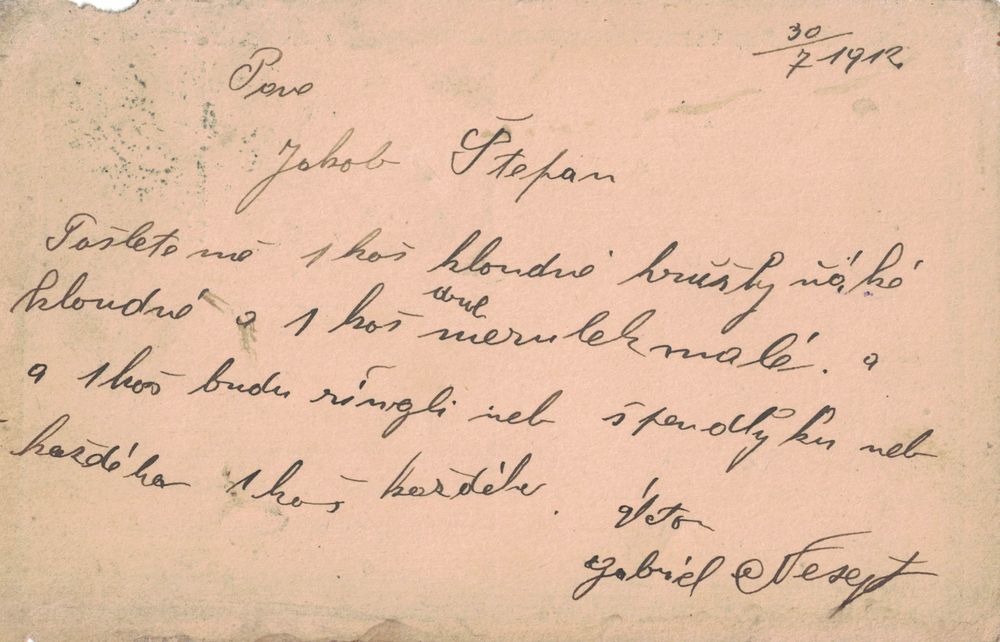 30/7 1912
Pane
Jakob Štepan
Pošlete mě 1 koš kloudné hrušky ňáké
kloudné a 1 koš merulek malé. a
a 1 koš budu ringli neb špendlyku neb
každého 1 koš každeho.
Gabriel Nesept